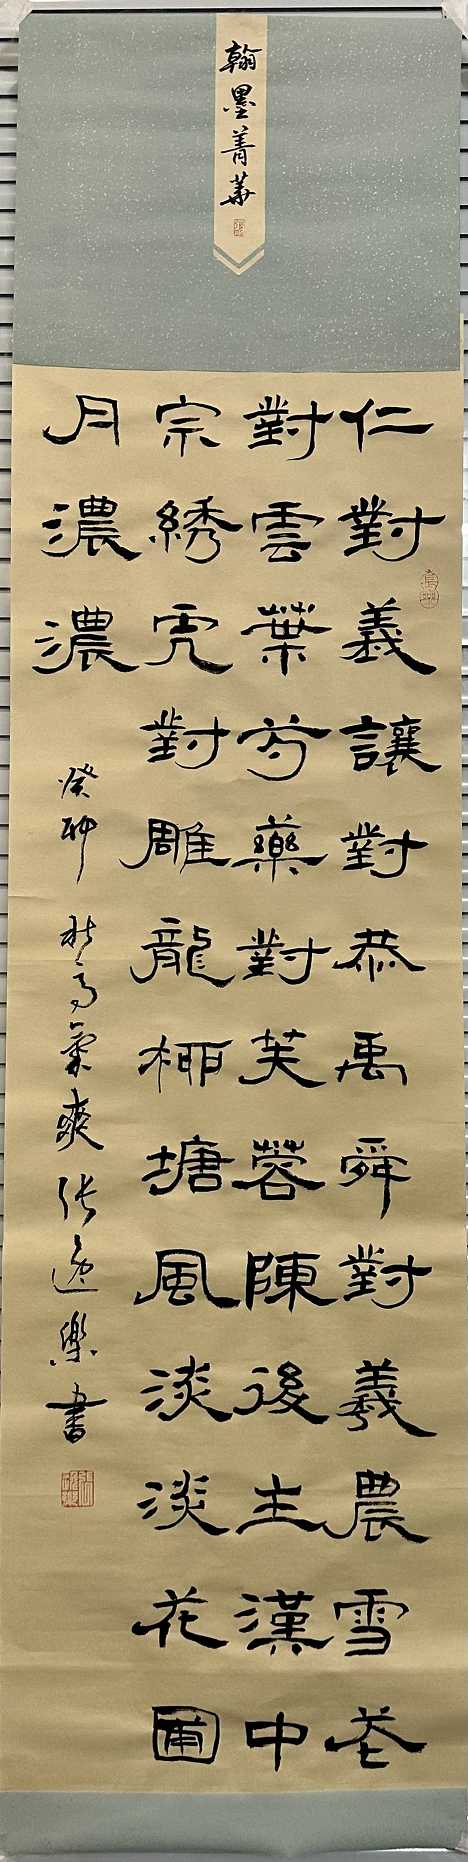 翰墨菁華
仁對義讓對恭禹舜對羲農雪花
對雲葉芍藥對芙蓉陳後主漢中
宗綉虎對雕龍柳塘風淡淡花圃
月濃濃
癸卯秋高氣爽張逸樂書